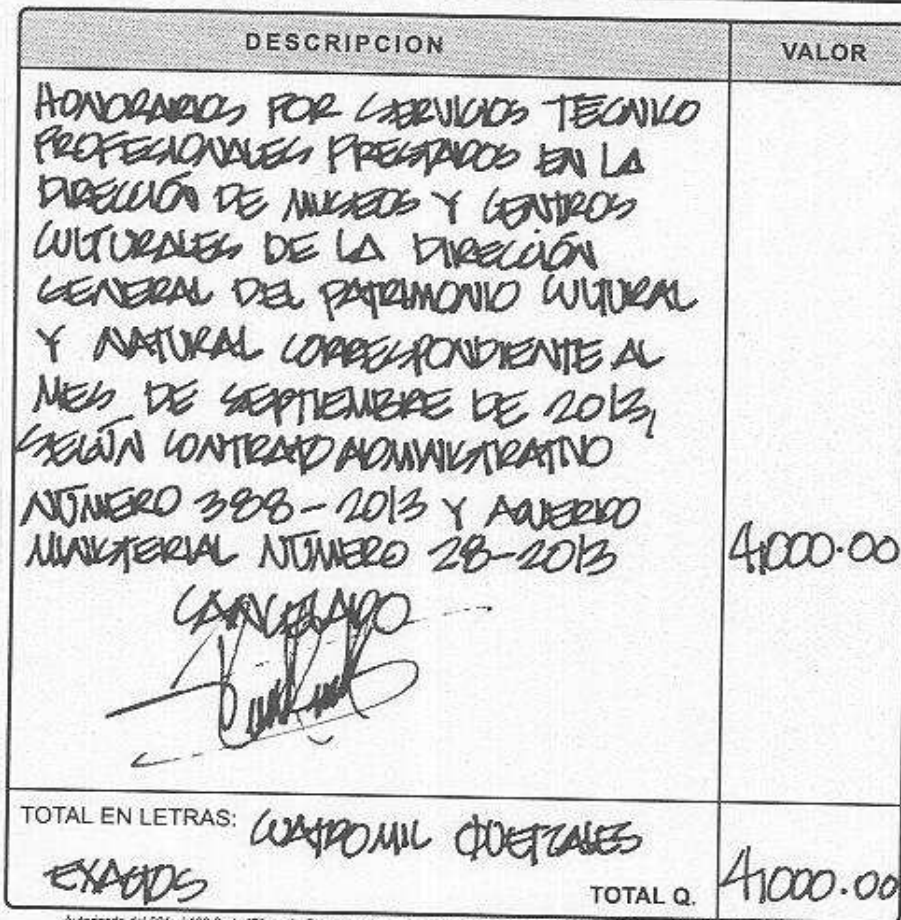 DESCRIPCION VALOR
HONORARIOS POR SERVICIOS TÉCNICO
PROFESIONALES PRESTADOS EN LA
DIRECCIÓN DE MUSEOS Y CENTROS
CULTURALES DE LA DIRECCIÓN
GENERAL DEL PATRIMONIO CULTURAL
Y NATURAL CORRESPONDIENTE AL
MES DE SEPTIEMBRE DE 2013,
SEGÚN CONTRATO ADMINISTRATIVO
NÚMERO 388-2013 Y ACUERDO
MINISTERIAL NÚMERO 28-2013 4,000.00
CANCELADO
TOTAL EN LETRAS: CUATRO MIL QUETZALES
EXACTOS TOTAL Q. 4,000.00